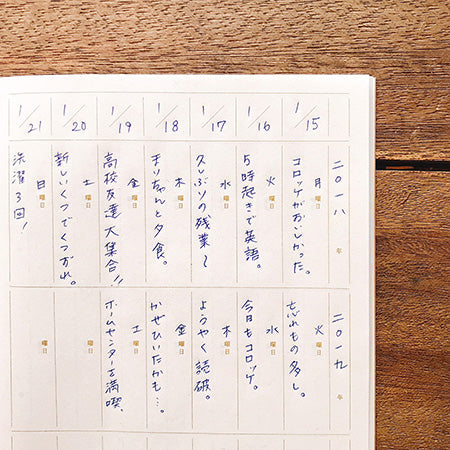 1/15
1/16
1/17
1/18
1/19
1/20
1/21
二〇一八年
月曜日
コロッケがおいしかった。
火曜日
5時起きで英語。
水曜日
久しぶりの残業〜
木曜日
まりちゃんと夕食。
金曜日
高校友達大集合!!
土曜日
新しいくつでくつずれ。
日曜日
洗濯3回!
二〇一九年
火曜日
忘れもの多し。
水曜日
今日もコロッケ。
木曜日
ようやく読破。
金曜日
かぜひいたかも…。
土曜日
ホームセンターを満喫、
曜日
曜日